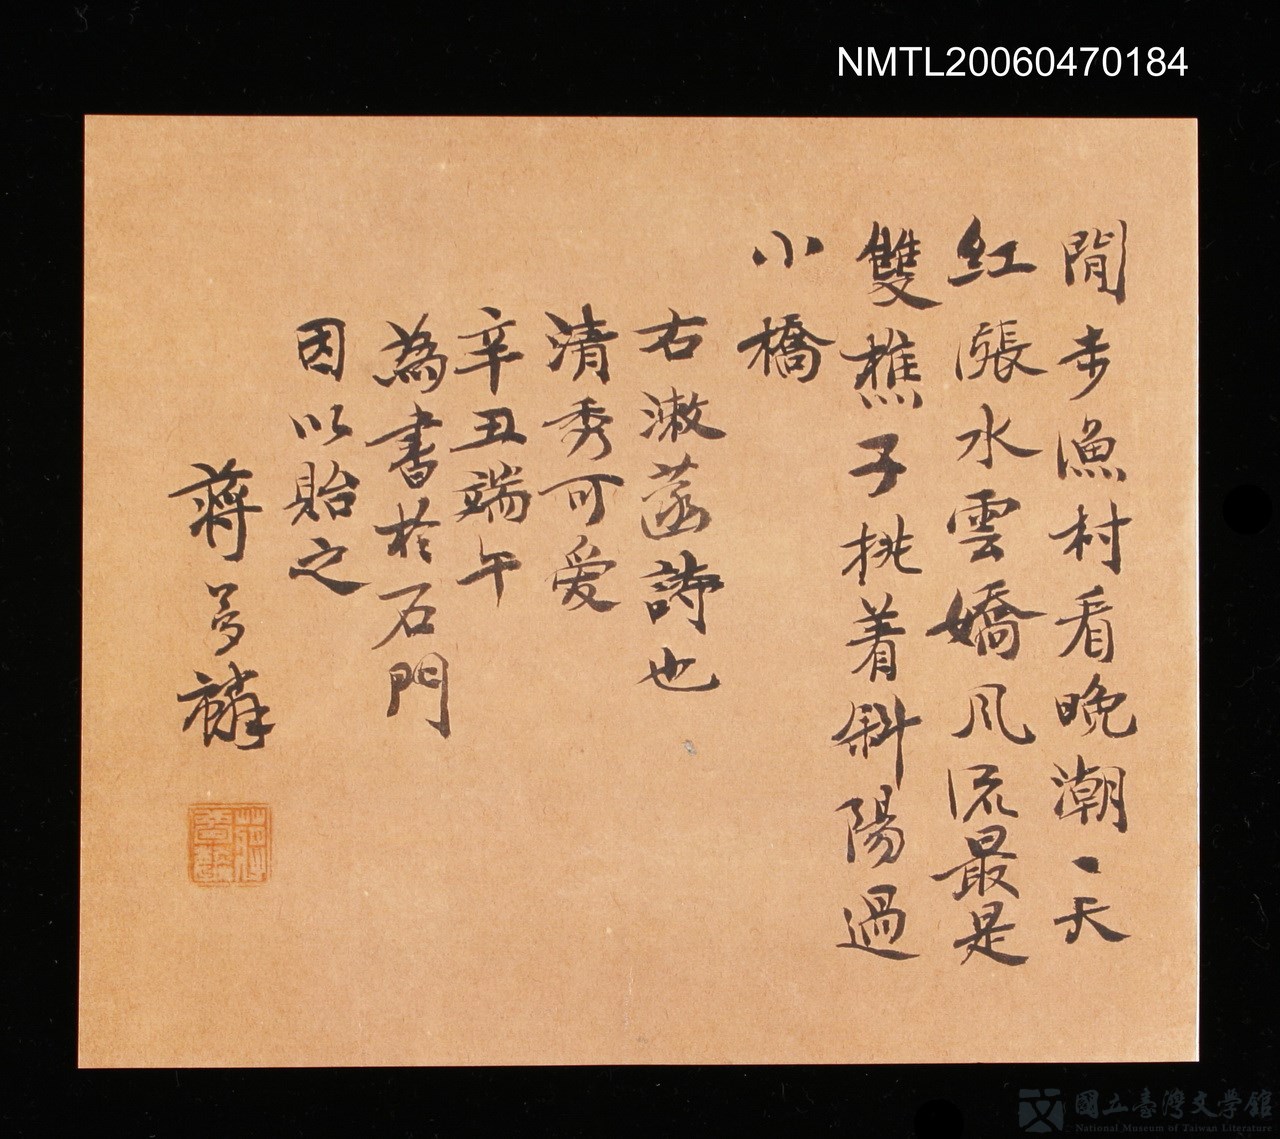 NMTL20060470184
閒步漁村看晚潮一天
紅漲水雲嬌風流最是
雙樵子挑着斜陽過
小橋
右漱菡詩也
清秀可爱
辛丑端午
為書於石門
因以貽之
蔣夢麟
國立臺灣文學館
National Museum of Taiwan Literature